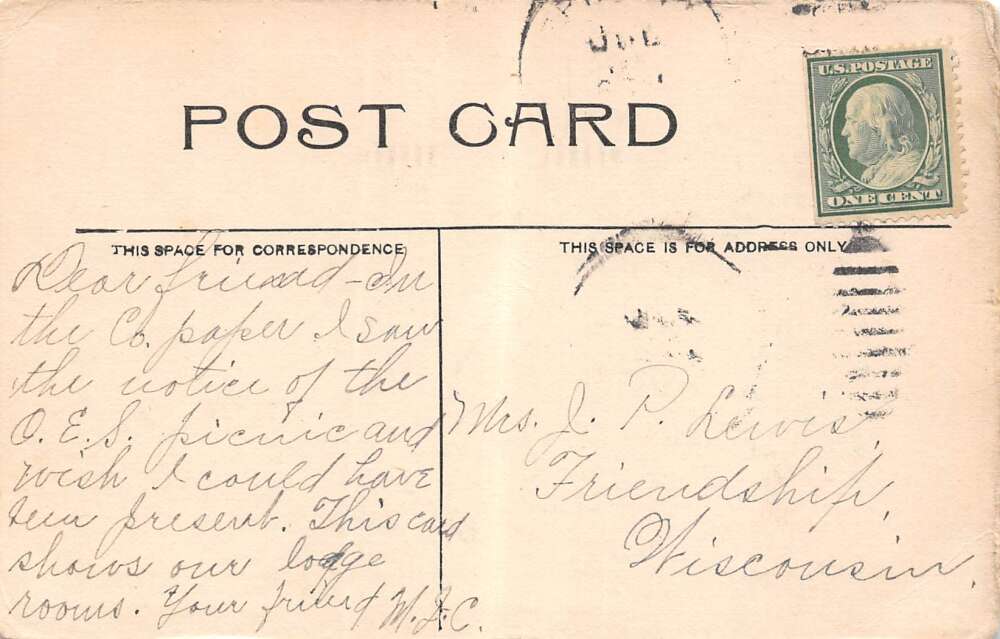 JUL
U.S. POSTAGE
ONE CENT
POST CARD
THIS SPACE FOR CORRESPONDENCE
THIS SPACE IS FOR ADDRESS ONLY
Dear friend - In
the Co. paper I saw
the notice of the
O. E. S. picnic and
wish I could have
been present. This card
shows our lodge
rooms. Your friend M. J. C.
Mrs. J. P. Lewis,
Friendship,
Wisconsin.